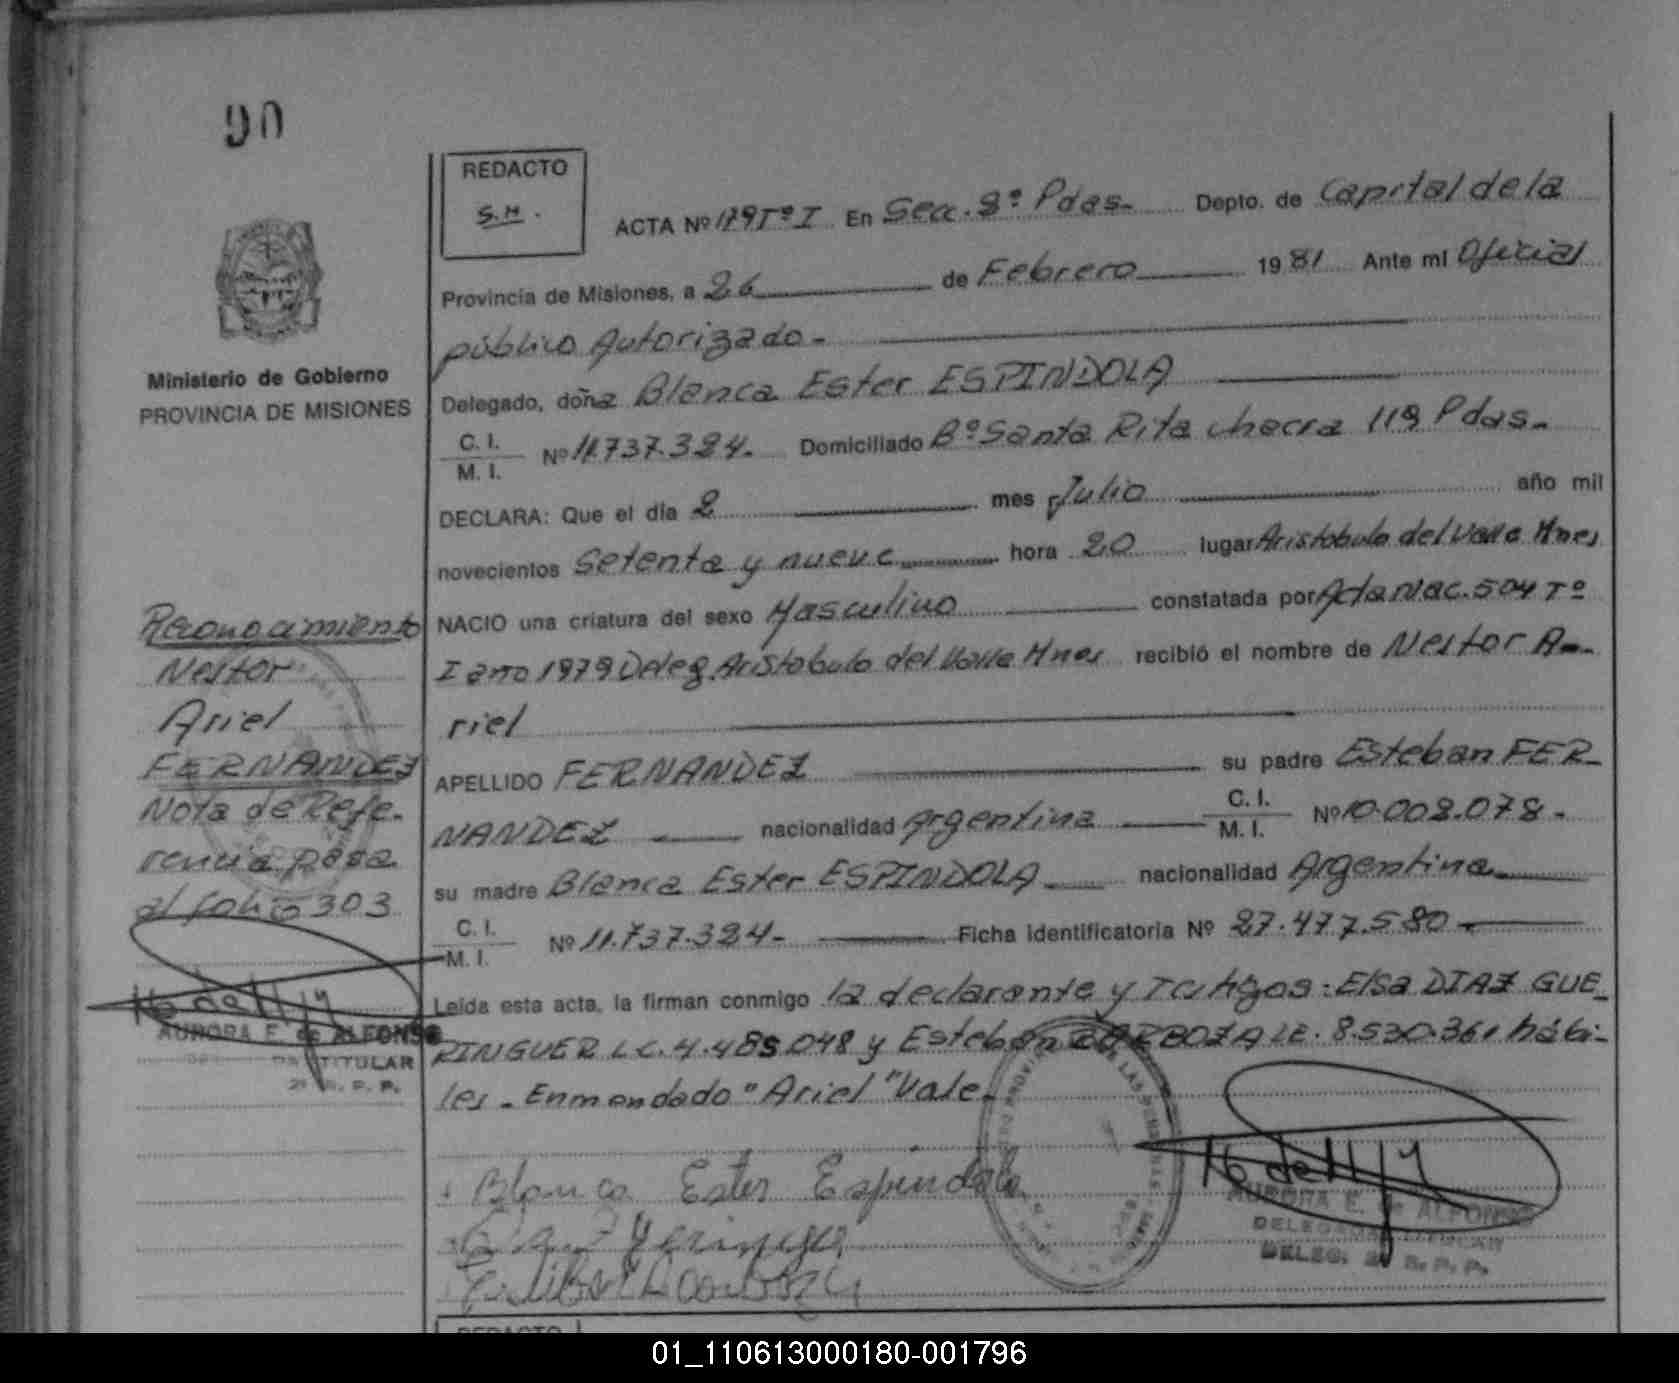 90
REDACTO
S.H.
ACTA Nº 179 Tº I En Secc. 2º Pdas. Depto. de Capital de la
Provincia de Misiones, a 26 de Febrero 1981 Ante mi Oficial
público Autorizado.
Delegado, doña Blanca Ester ESPINDOLA
C. I.
M. I. Nº 11.737.324. Domiciliado Bº Santa Rita chacra 119 Pdas.
DECLARA: Que el día 2 mes Julio año mil
novecientos Setenta y nueve hora 20 lugar Aristobulo del Valle Mnes
NACIO una criatura del sexo Masculino constatada por Acta Nac. 504 Tº
I año 1979 Deleg. Aristobulo del Valle Mnes recibió el nombre de Nestor A-
riel
APELLIDO FERNANDEZ su padre Esteban FER-
NANDEZ nacionalidad Argentina C. I. M. I. Nº 10.008.078.
su madre Blanca Ester ESPINDOLA nacionalidad Argentina
C. I.
M. I. Nº 11.737.324. Ficha identificatoria Nº 27.477.580
Leída esta acta, la firman conmigo la declarante y Testigos: Elsa DIAZ GUE-
RINGUER LC. 4.485.048 y Esteban BARBOZA LE. 8.530.361 hábi-
les. Enmendado "Ariel" Vale.
Blanca Ester Espindola
AURORA E. de ALFONSO
DELEGADA TITULAR
DELEG. 2ª S. P. P.
Ministerio de Gobierno
PROVINCIA DE MISIONES
Reconocimiento
Nestor
Ariel
FERNANDEZ
Nota de Refe-
rencia pasa
al folio 303
AURORA E. de ALFONSO
DA TITULAR
2ª S. P. P.
REDACTO
01_110613000180-001796